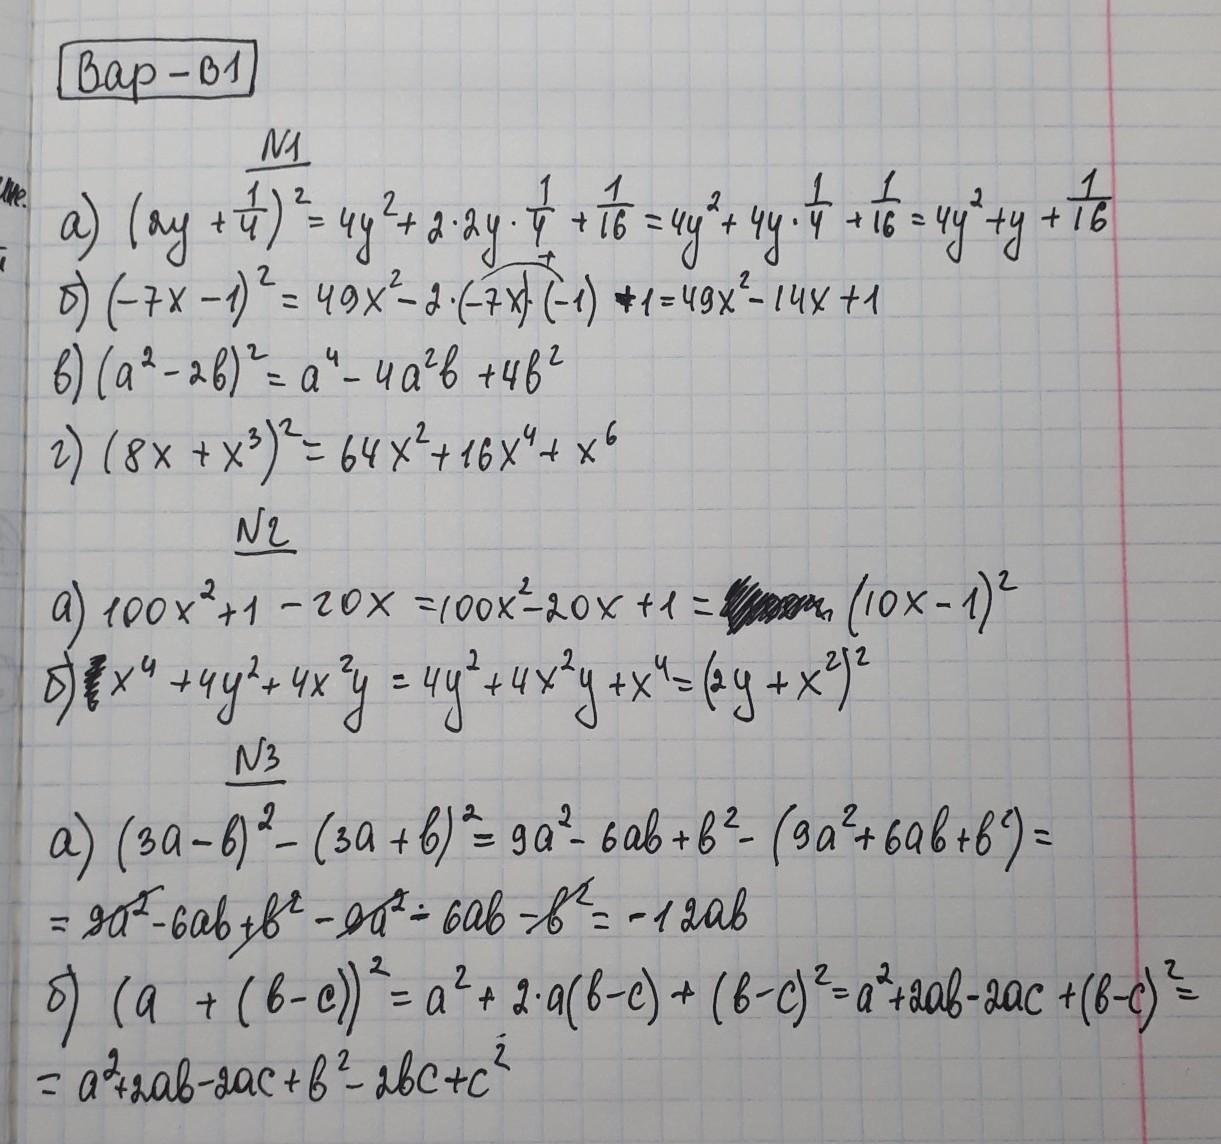 Вар-В1
N1
а) (2y + 1/4)² = 4y² + 2·2y·1/4 + 1/16 = 4y² + 4y·1/4 + 1/16 = 4y² + y + 1/16
+
б) (-7x - 1)² = 49x² - 2·(-7x)·(-1) + 1 = 49x² - 14x + 1
в) (a² - 2b)² = a⁴ - 4a²b + 4b²
г) (8x + x³)² = 64x² + 16x⁴ + x⁶
N2
а) 100x² + 1 - 20x = 100x² - 20x + 1 = (10x - 1)²
б) x⁴ + 4y² + 4x²y = 4y² + 4x²y + x⁴ = (2y + x²)²
N3
а) (3a - b)² - (3a + b)² = 9a² - 6ab + b² - (9a² + 6ab + b²) =
= 9a² - 6ab + b² - 9a² - 6ab - b² = -12ab
б) (a + (b - c))² = a² + 2·a(b - c) + (b - c)² = a² + 2ab - 2ac + (b - c)² =
= a² + 2ab - 2ac + b² - 2bc + c²